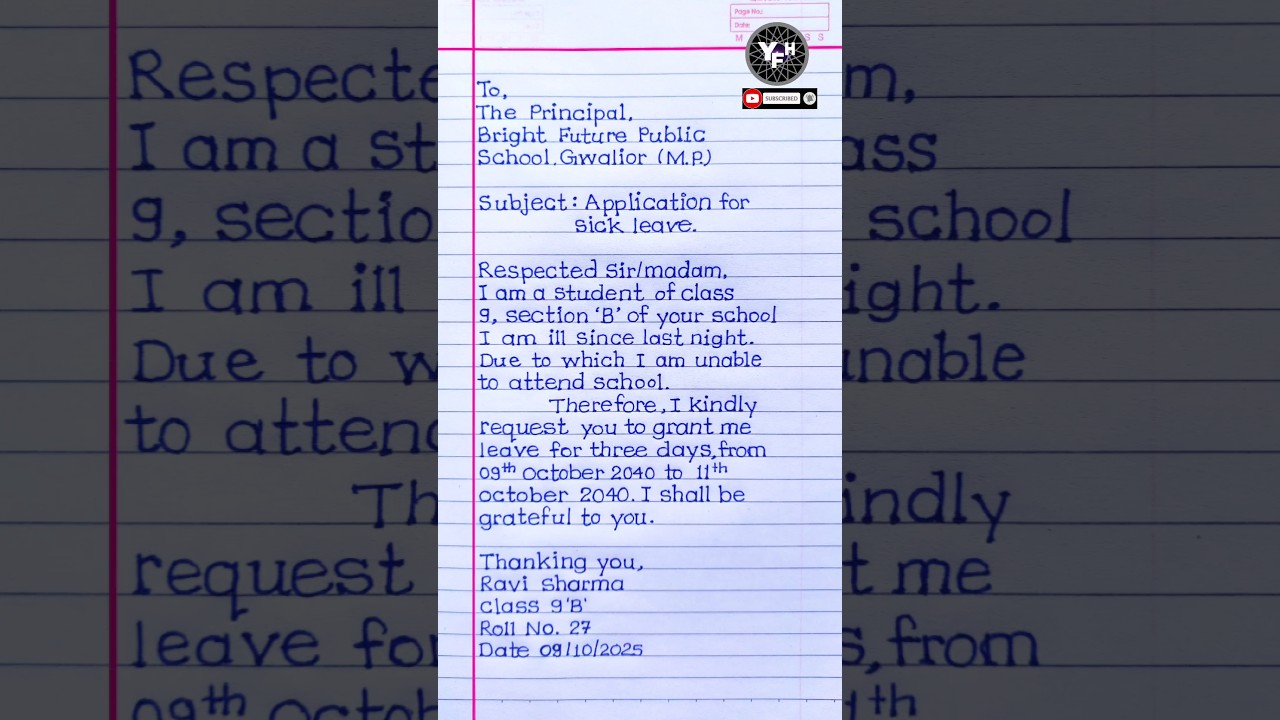 Page No.:
Date:
YFH
SUBSCRIBED
To,
The Principal,
Bright Future Public
School, Gwalior (M.P.)
Subject: Application for
sick leave.
Respected Sir/madam,
I am a student of class
9, section ‘B’ of your school
I am ill since last night.
Due to which I am unable
to attend school.
Therefore, I kindly
request you to grant me
leave for three days, from
09th October 2040 to 11th
October 2040. I shall be
grateful to you.
Thanking you,
Ravi Sharma
Class 9'B'
Roll No. 27
Date 09/10/2025